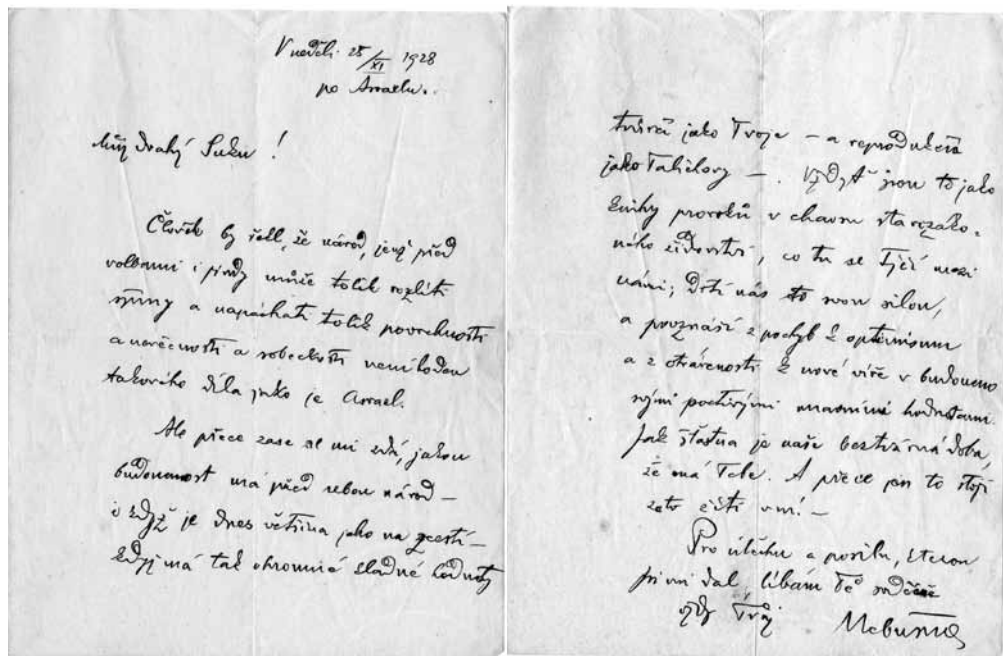 V neděli 25/XI 1928
po Asraelu.
Můj drahý Suku!
Člověk by řekl, že národ, jenž před
volbami i jindy může tolik rozlíti
špíny a napáchati tolik povrchnosti
a nevěcnosti a sobeckosti není hoden
takového díla jako je Asrael.
Ale přece zase se mi zdá, jakou
budoucnost má před sebou národ —
i když je dnes většina jako na zcestí —
když má tak ohromné kladné hodnoty
tvůrčí jako Tvoje — a reprodukční
jako Talichovy —. Vždyť jsou to jako
knihy proroků v chaosu starozákon-
ního židovství, co tu se tyčí mezi
námi; Drtí nás to svou silou,
a povznáší z pochyb k optimismu
a z otrávenosti k nové víře v budoucno
svými poctivými mravními hodnotami.
Jak šťastna je naše beztvárná doba,
že má Tebe. A přece jen to stojí
zato žíti v ní —
Pro útěchu a posilu, kterou
jsi mi dal líbám Tě srdečně
vždy Tvůj